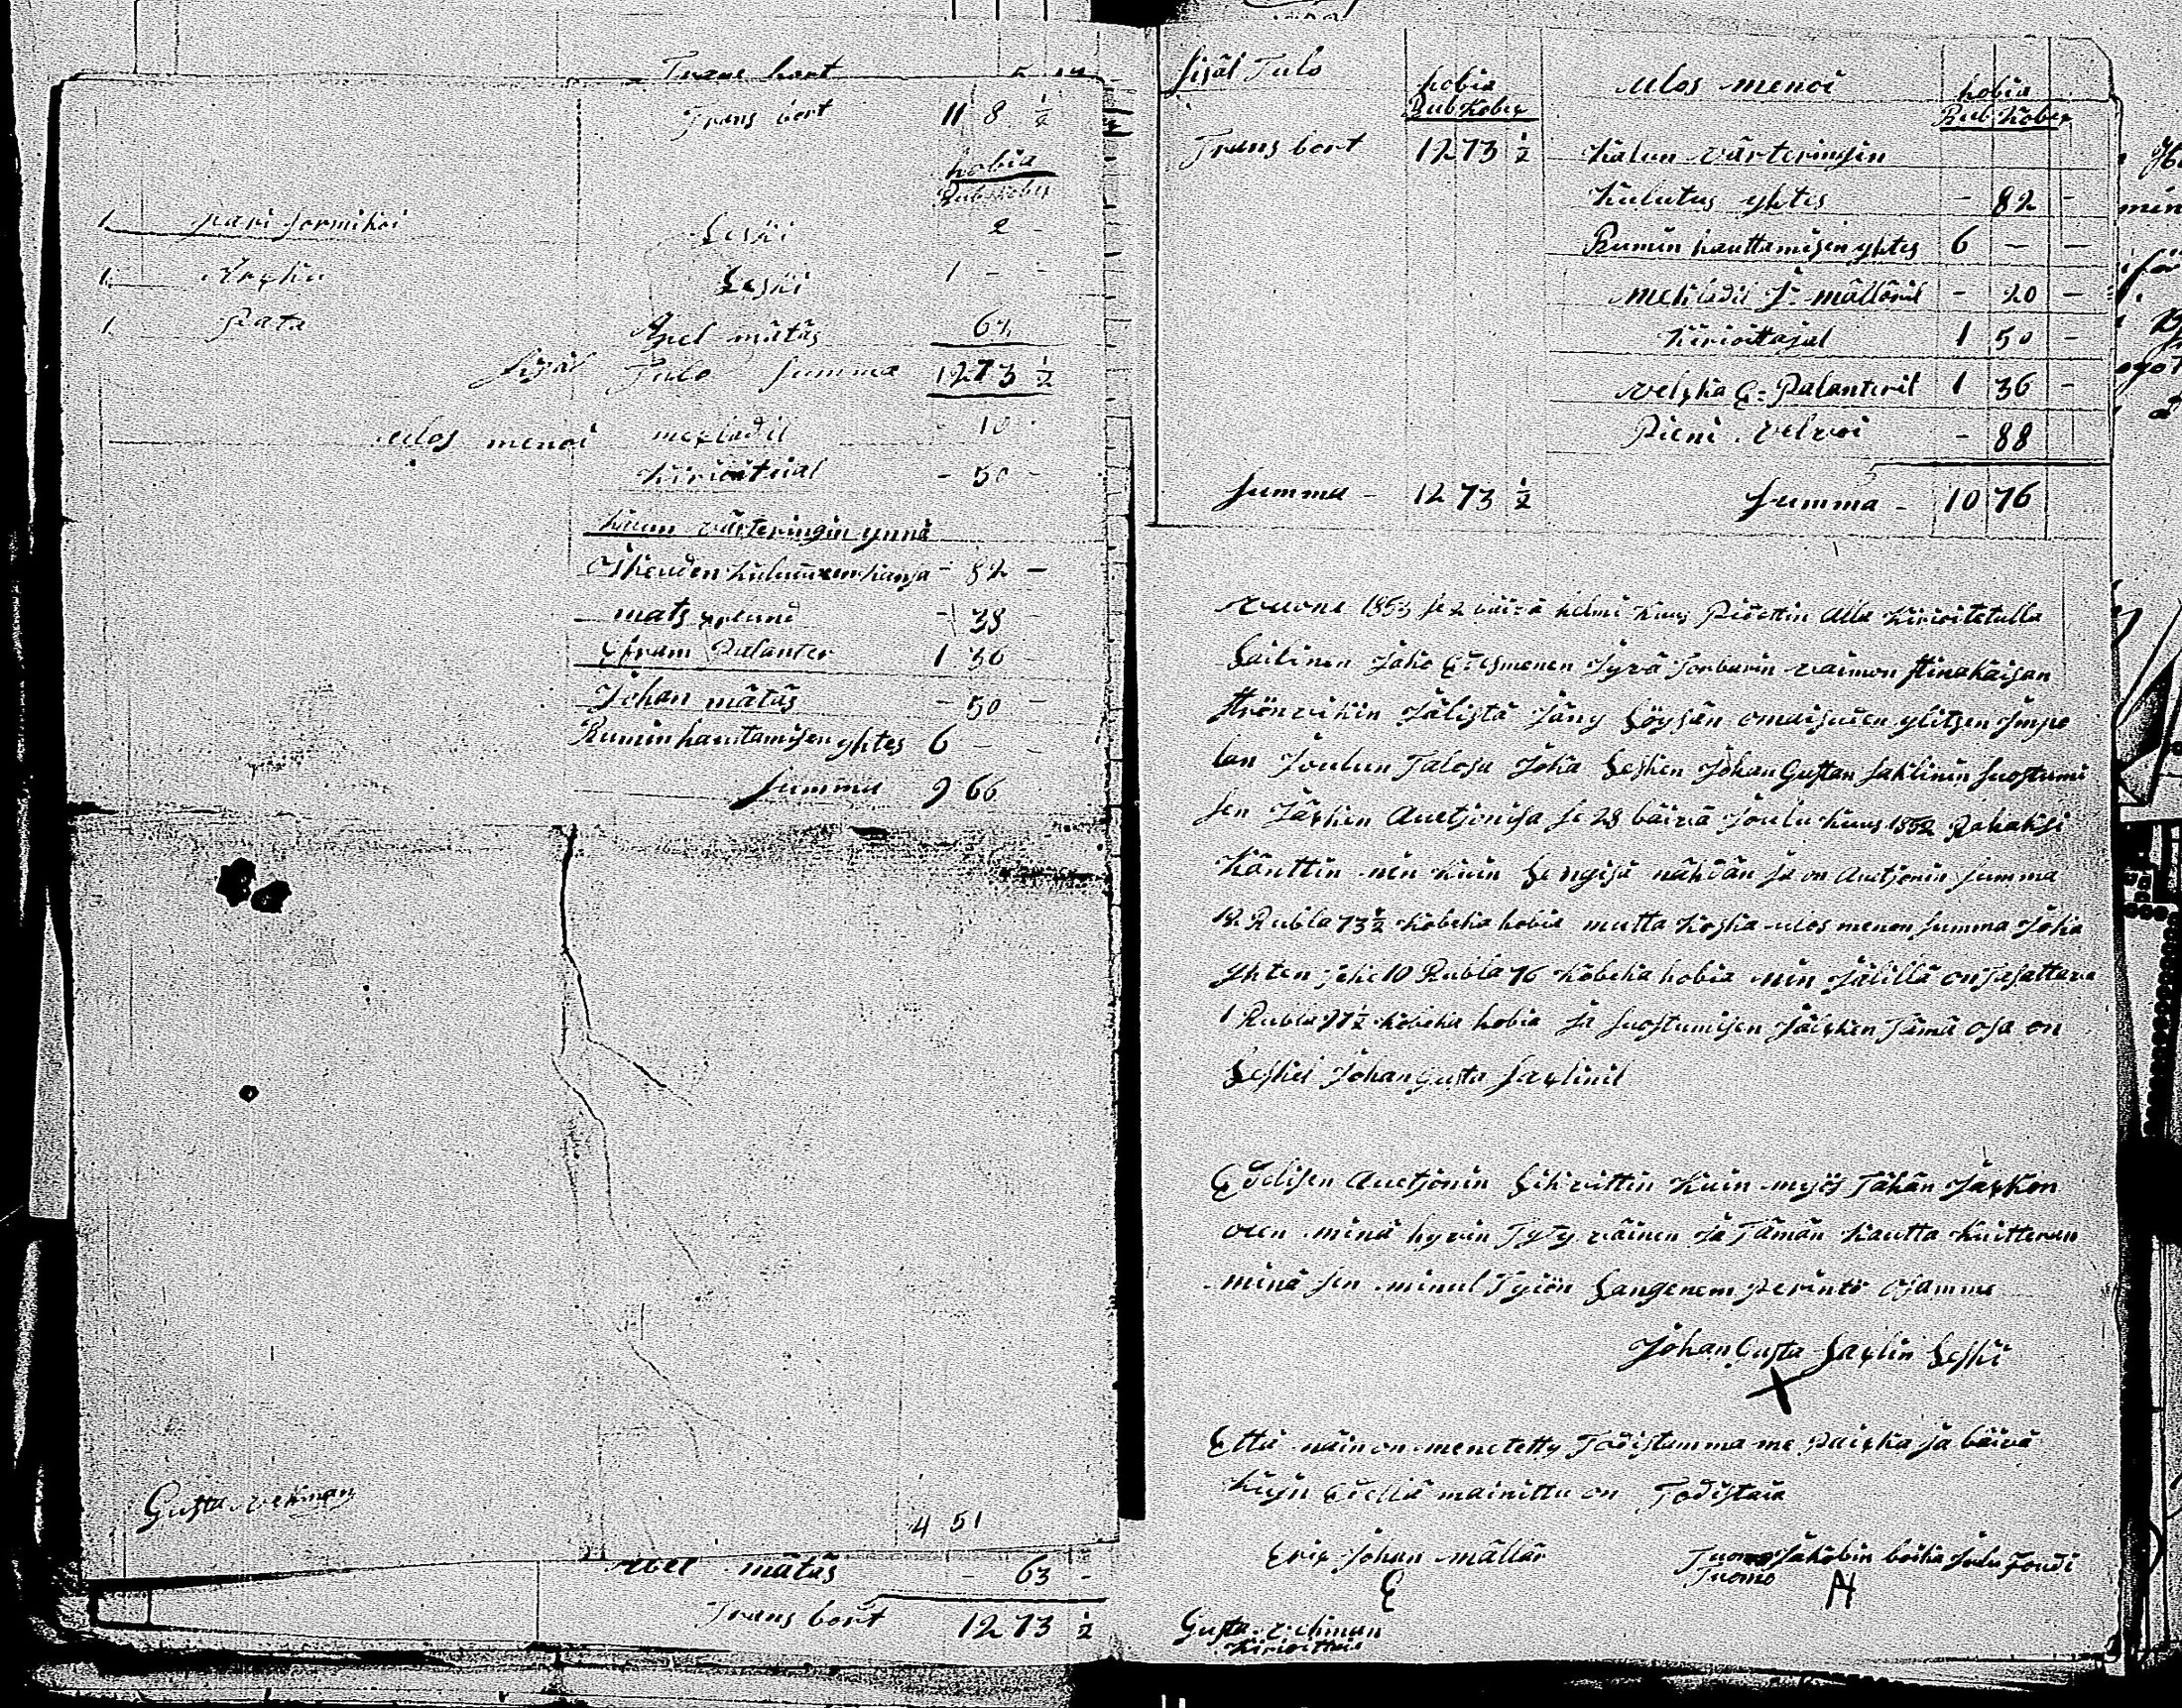 Trans bort
Trans bort 11 8 ½
hobia
Rub Kobex
1 pari formikoi Leski 2 -
1 Leski 1 - -
1 Pata Abel mätäs 63
sisäl Tulo summa 12 73 ½
ulos menoi mexladil - 10 -
Kirioittial - 50 -
Kalun värteringin ynnä
- 82 -
mats - 38
Efram Palanter 1 36 -
Johan mätäs - 50 -
Rumin hauttamisen yhtes 6 - -
summa 9 66
Gusta vekman
4 51
Abel mätäs - 63 -
Trans bort 12 73 ½
sisäl Tulo hobia ulos menoi hobia
Rub Kobex Rub Kobex
Trans bort 12 73 ½ Kalun värteringin
Kulutus yhtes - 82 -
Rumin hauttamisen yhtes 6 - -
mekladil J: mällöril - 20 -
Kirioittajal 1 50 -
velska E: Palanteril 1 36 -
Pieni velvoi - 88
summa - 12 73 ½ summa - 10 76
vuona 1853 se 2 bäivä helmi kuus Pidettin alla Kirioitetulla
Lailinen Jako Edesmenen Syvä Torbarin vaimon Stinakaisan
Strönvikin Jälistä Jäny Löysän omaisuden ylitzen Impo
lan Joulun Talosa Joka Lesken Johan Gustan saklinin suostumi
sen Jäxken Auctjonisa se 28 bäivä Joulu kuus 1852 Rahaksi
Käuttin nin kuin Längisä nähdän ja on Auctjonin summa
12 Rubla 73 ½ Kobeka hobia mutta koska ulos menon summa Joka
yhten Jeke 10 Rubla 76 Kobeka hobia nin Jälillä on Jasattava
1 Rubla 97 ½ Kobeka hobia ja suostumisen Jälexken Tämä osa on
Leskel Johan Gusta saxlinil
Edelisen Auctjonin Sihrittin Kuin myös Tähän Jaxkon
olen minä hyvin Tyty väinen ja Tämän Kautta Kuitteran
minä sen minul Tyiön Langenem perintö osamme
Johan Gusta Saxlin Leski
X
Että näin on menetetty Todistamma me paixka ja bäivä
Kuin Edellä mainittu on Todistaia
Eric Johan mällär Tuomo Jakobin boika
E Tuomo
Gusta vekman
Kirioittaia